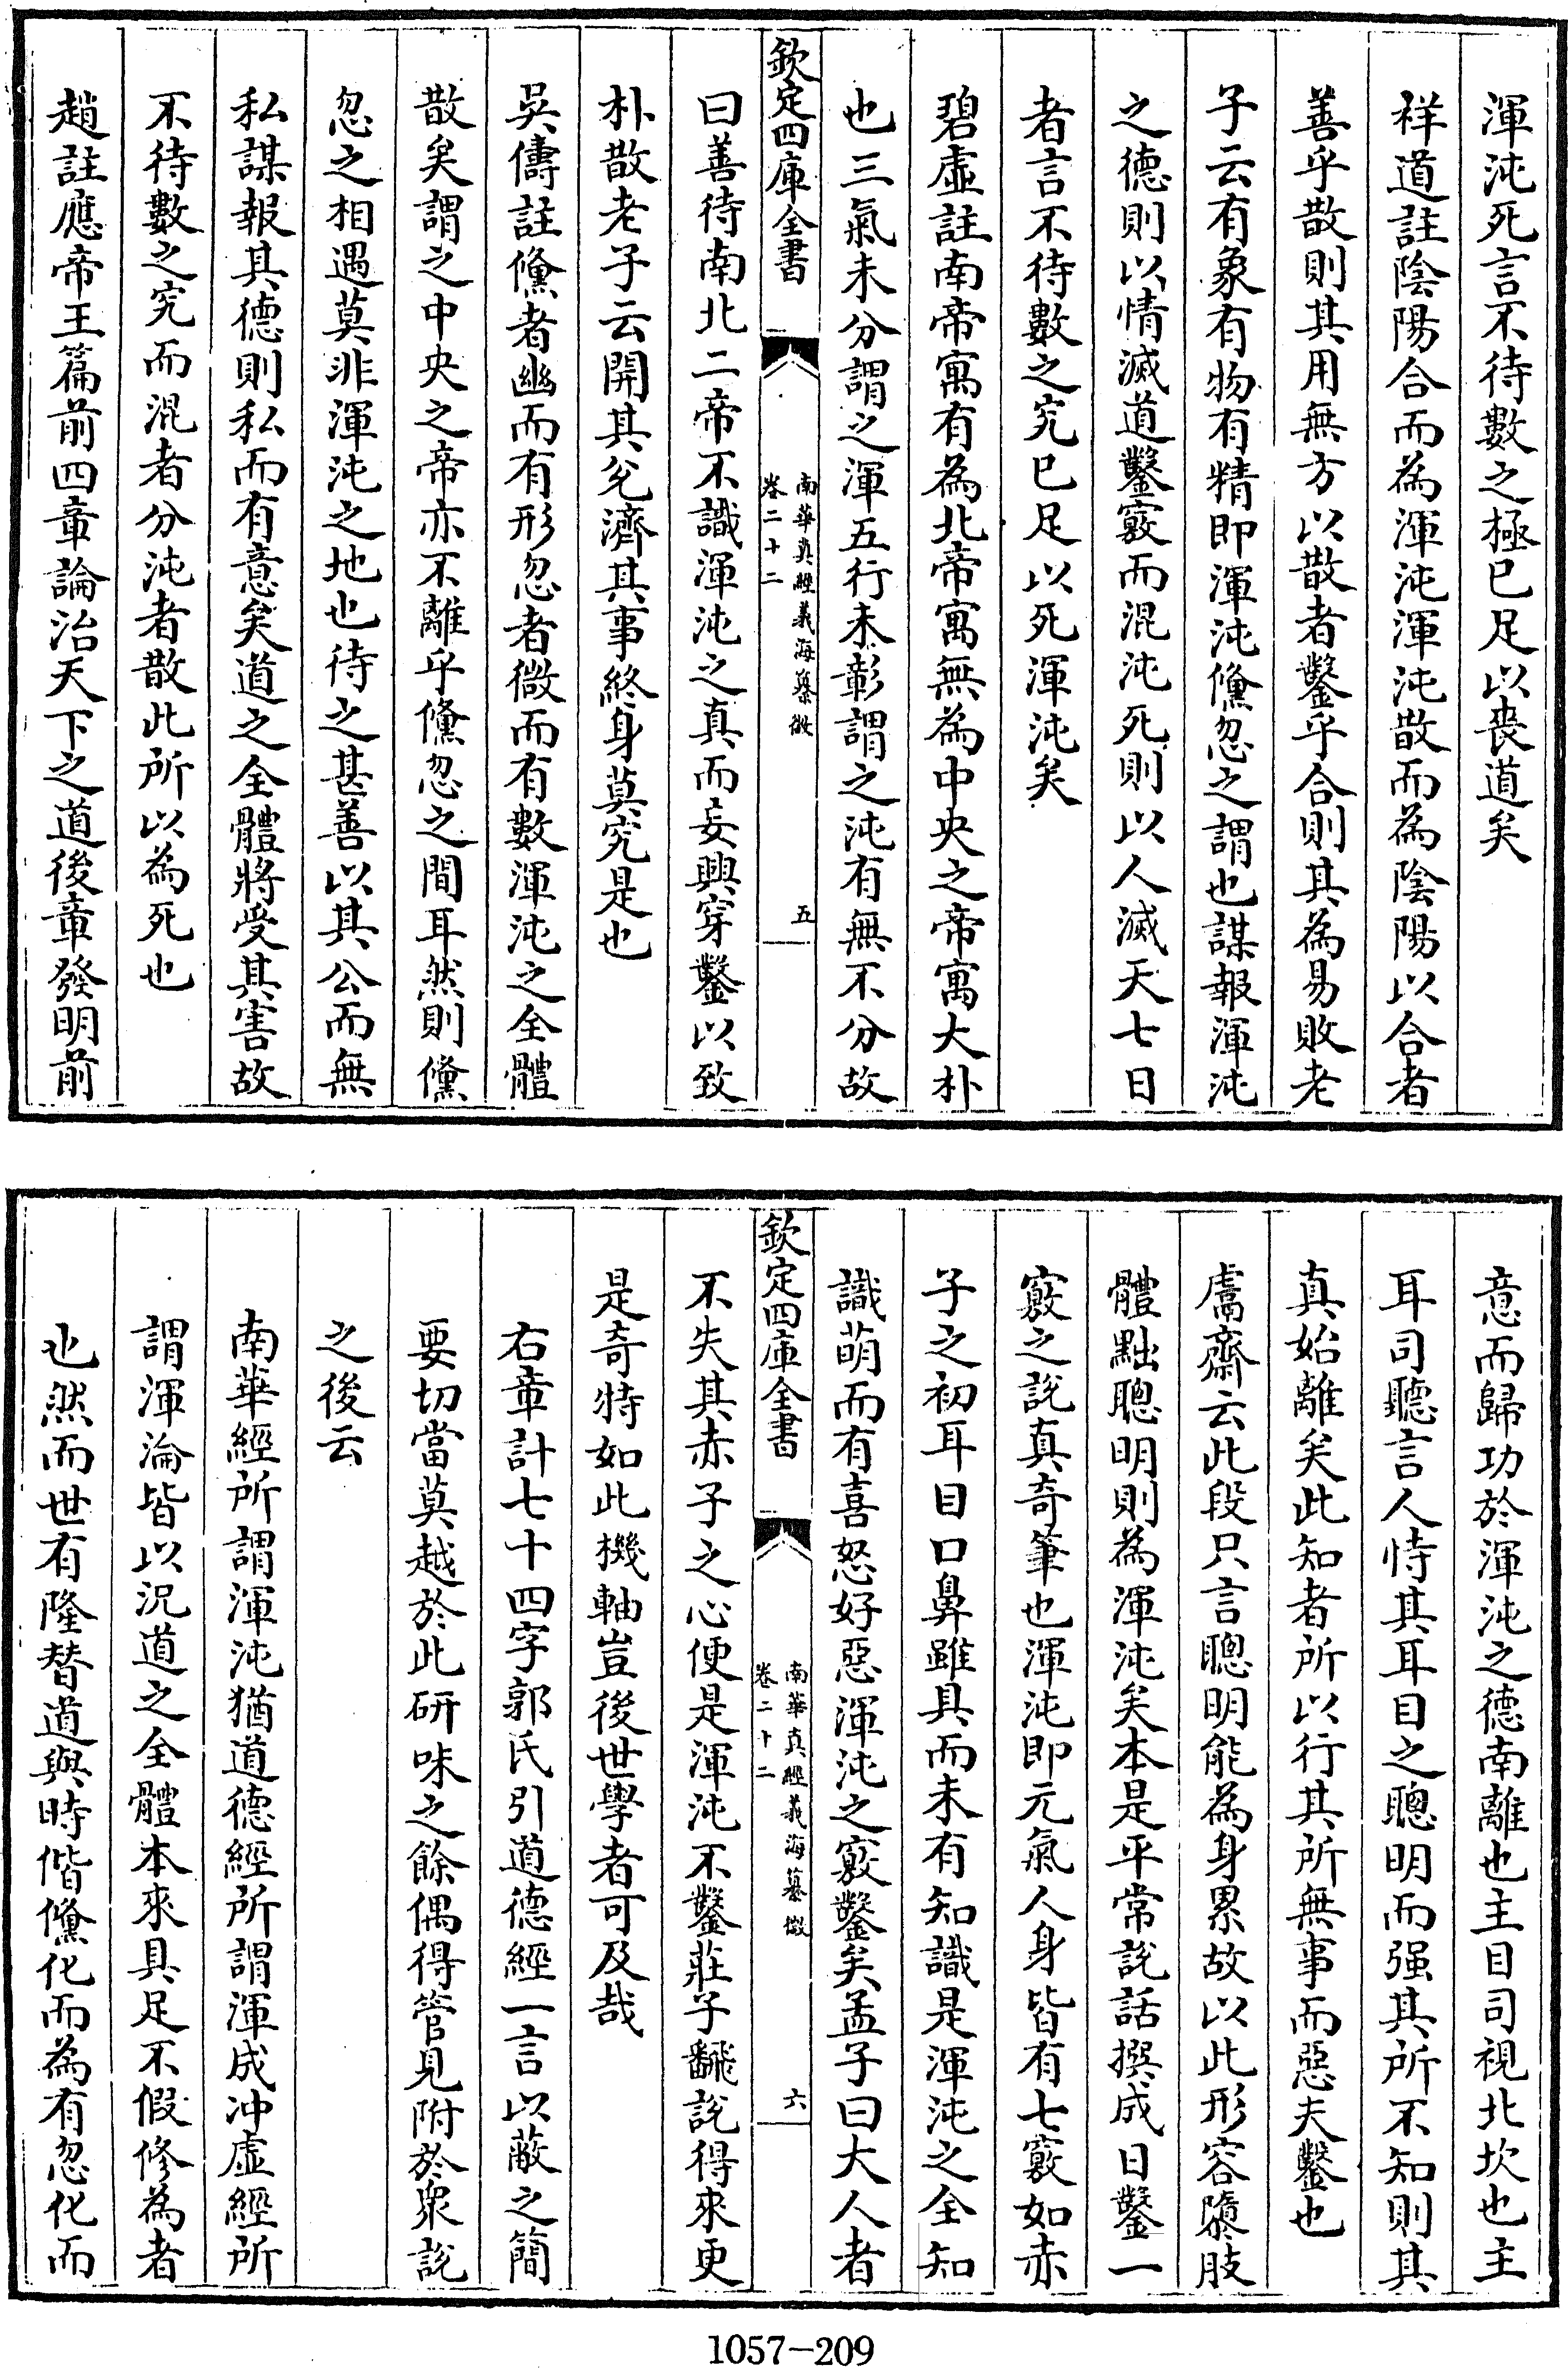 渾沌死言不待數之極已足以喪道矣
祥道註陰陽合而為渾沌渾沌散而為陰陽以合者
善乎散則其用無方以散者鑿乎合則其為易敗老
子云有象有物有精即渾沌儵忽之謂也謀報渾沌
之德則以情滅道鑿竅而混沌死則以人滅天七日
者言不待數之究已足以死渾沌矣
碧虛註南帝寓有為北帝寓無為中央之帝寓大朴
也三氣未分謂之渾五行未彰謂之沌有無不分故
欽定四庫全書
南華真經義海纂微
卷二十二
五
曰善待南北二帝不識渾沌之真而妄興穿鑿以致
朴散老子云開其兌濟其事終身莫究是也
吳儔註儵者幽而有形忽者微而有數渾沌之全體
散矣謂之中央之帝亦不離乎儵忽之間耳然則儵
忽之相遇莫非渾沌之地也待之甚善以其公而無
私謀報其德則私而有意矣道之全體將受其害故
不待數之究而混者分沌者散此所以為死也
趙註應帝王篇前四章論治天下之道後章發明前
意而歸功於渾沌之德南離也主目司視北坎也主
耳司聽言人恃其耳目之聰明而强其所不知則其
真始離矣此知者所以行其所無事而惡夫鑿也
鬳齋云此段只言聰明能為身累故以此形容隳肢
體黜聰明則為渾沌矣本是平常說話撰成日鑿一
竅之說真奇筆也渾沌即元氣人身皆有七竅如赤
子之初耳目口鼻雖具而未有知識是渾沌之全知
識萌而有喜怒好惡渾沌之竅鑿矣孟子曰大人者
欽定四庫全書
南華真經義海纂微
卷二十二
六
不失其赤子之心便是渾沌不鑿莊子飜說得來更
是奇特如此機軸豈後世學者可及哉
右章計七十四字郭氏引道德經一言以蔽之簡
要切當莫越於此研味之餘偶得管見附於衆說
之後云
南華經所謂渾沌猶道德經所謂渾成冲虛經所
謂渾淪皆以況道之全體本來具足不假修為者
也然而世有隆替道與時偕儵化而為有忽化而
1057-209